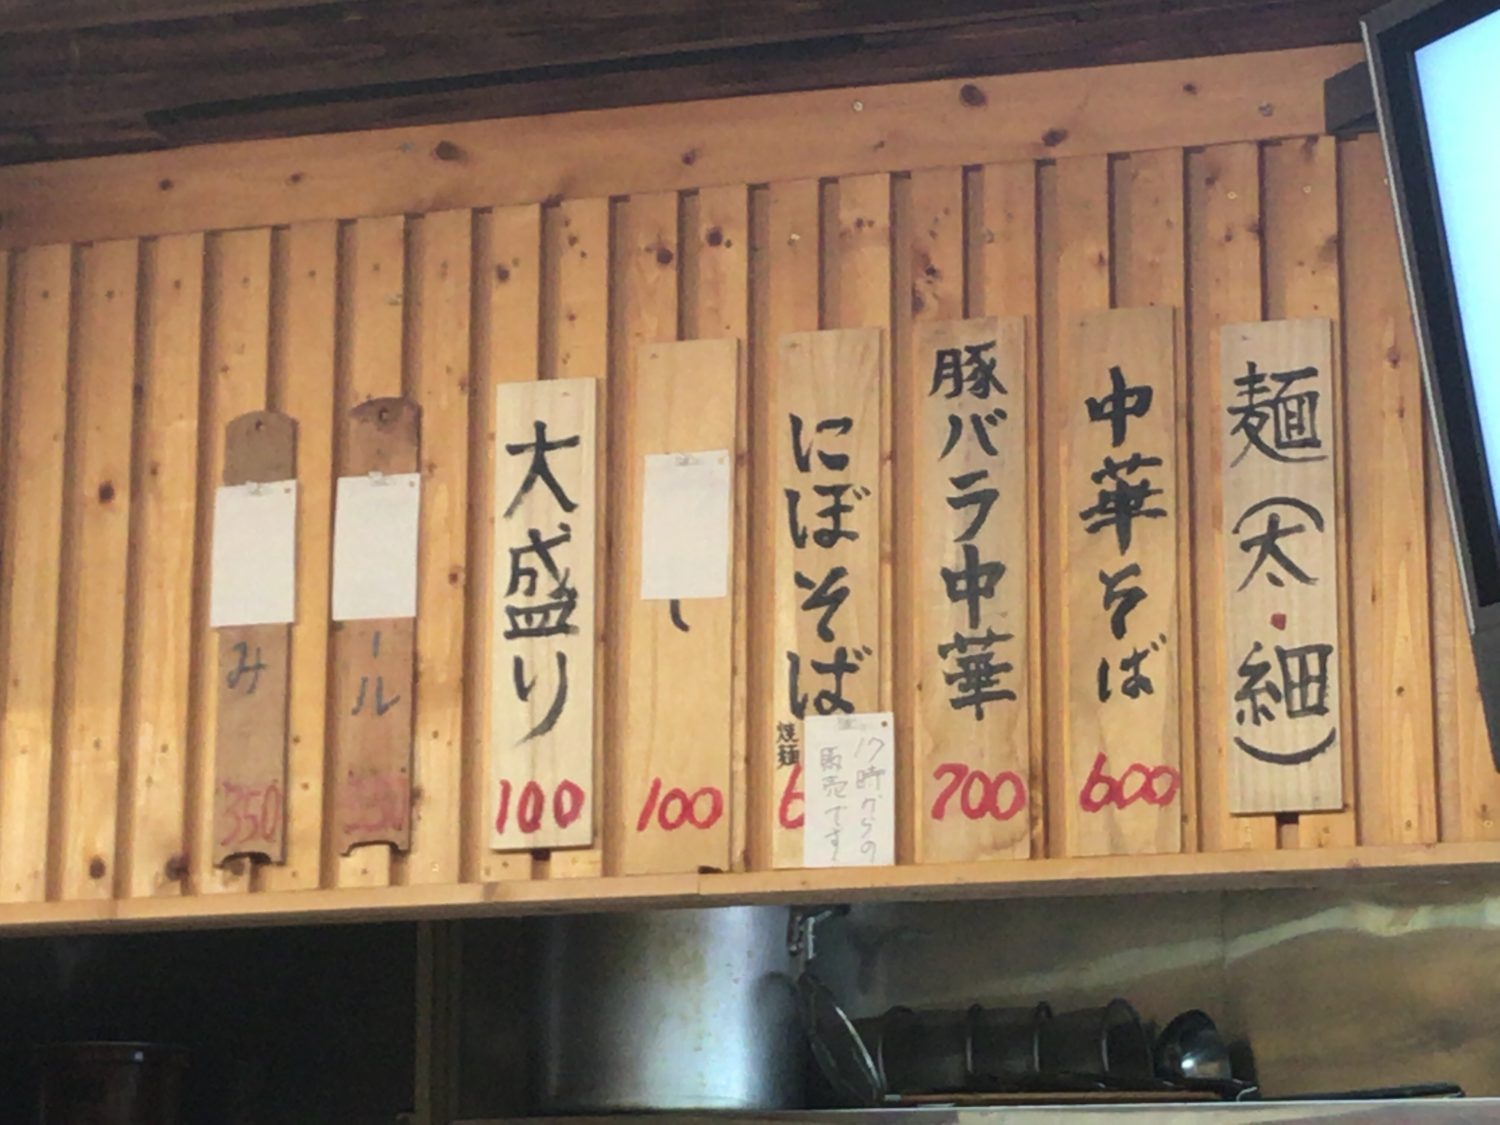 麺(太・細)
中華そば
600
豚バラ中華
700
にぼそば
焼麺
6
17時からの
販売です!
し
100
大盛り
100
ール
み
350